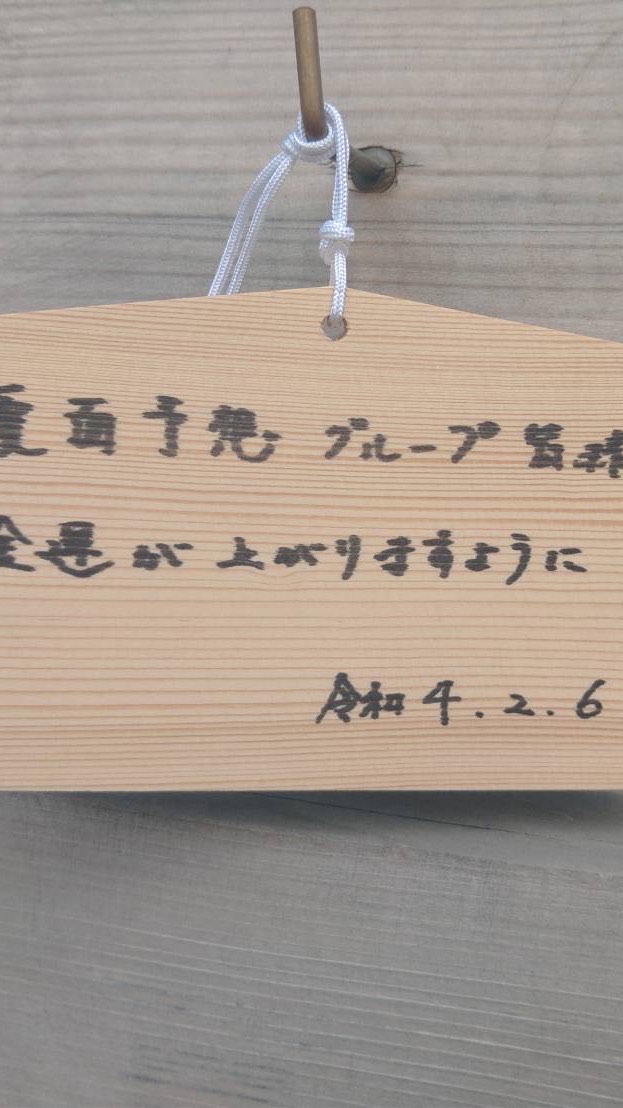 面予想 グループ 皆様
金運が上がりますように
令和4.2.6